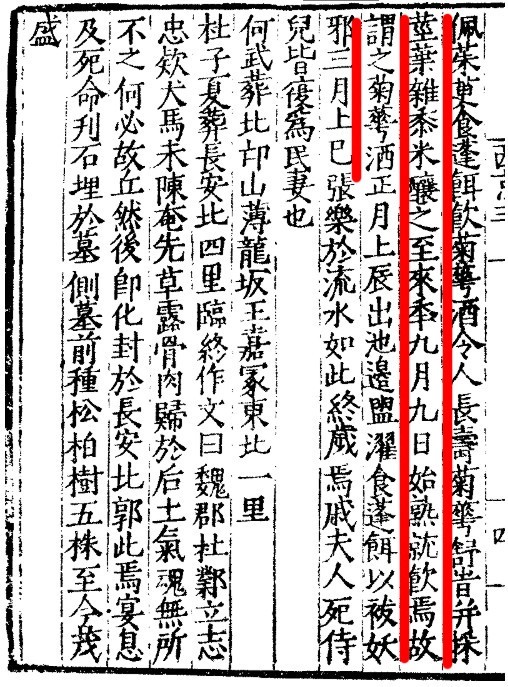 佩茱萸食蓬餌飲菊華酒令人長壽菊華舒時并採
莖葉雜黍米釀之至來年九月九日始熟就飲焉故
謂之菊華酒正月上辰出池邊盥濯食蓬餌以祓妖
邪三月上巳張樂於流水如此終歲焉戚夫人死侍
兒皆復為民妻也
何武葬北邙山薄龍坂王嘉冢東北一里
杜子夏葬長安北四里臨終作文曰魏郡杜鄴立志
忠欵犬馬未陳奄先草露骨肉歸於后土氣魂無所
不之何必故丘然後即化封於長安北郭此焉宴息
及死命刊石埋於墓側墓前種松柏樹五株至今茂
盛
四